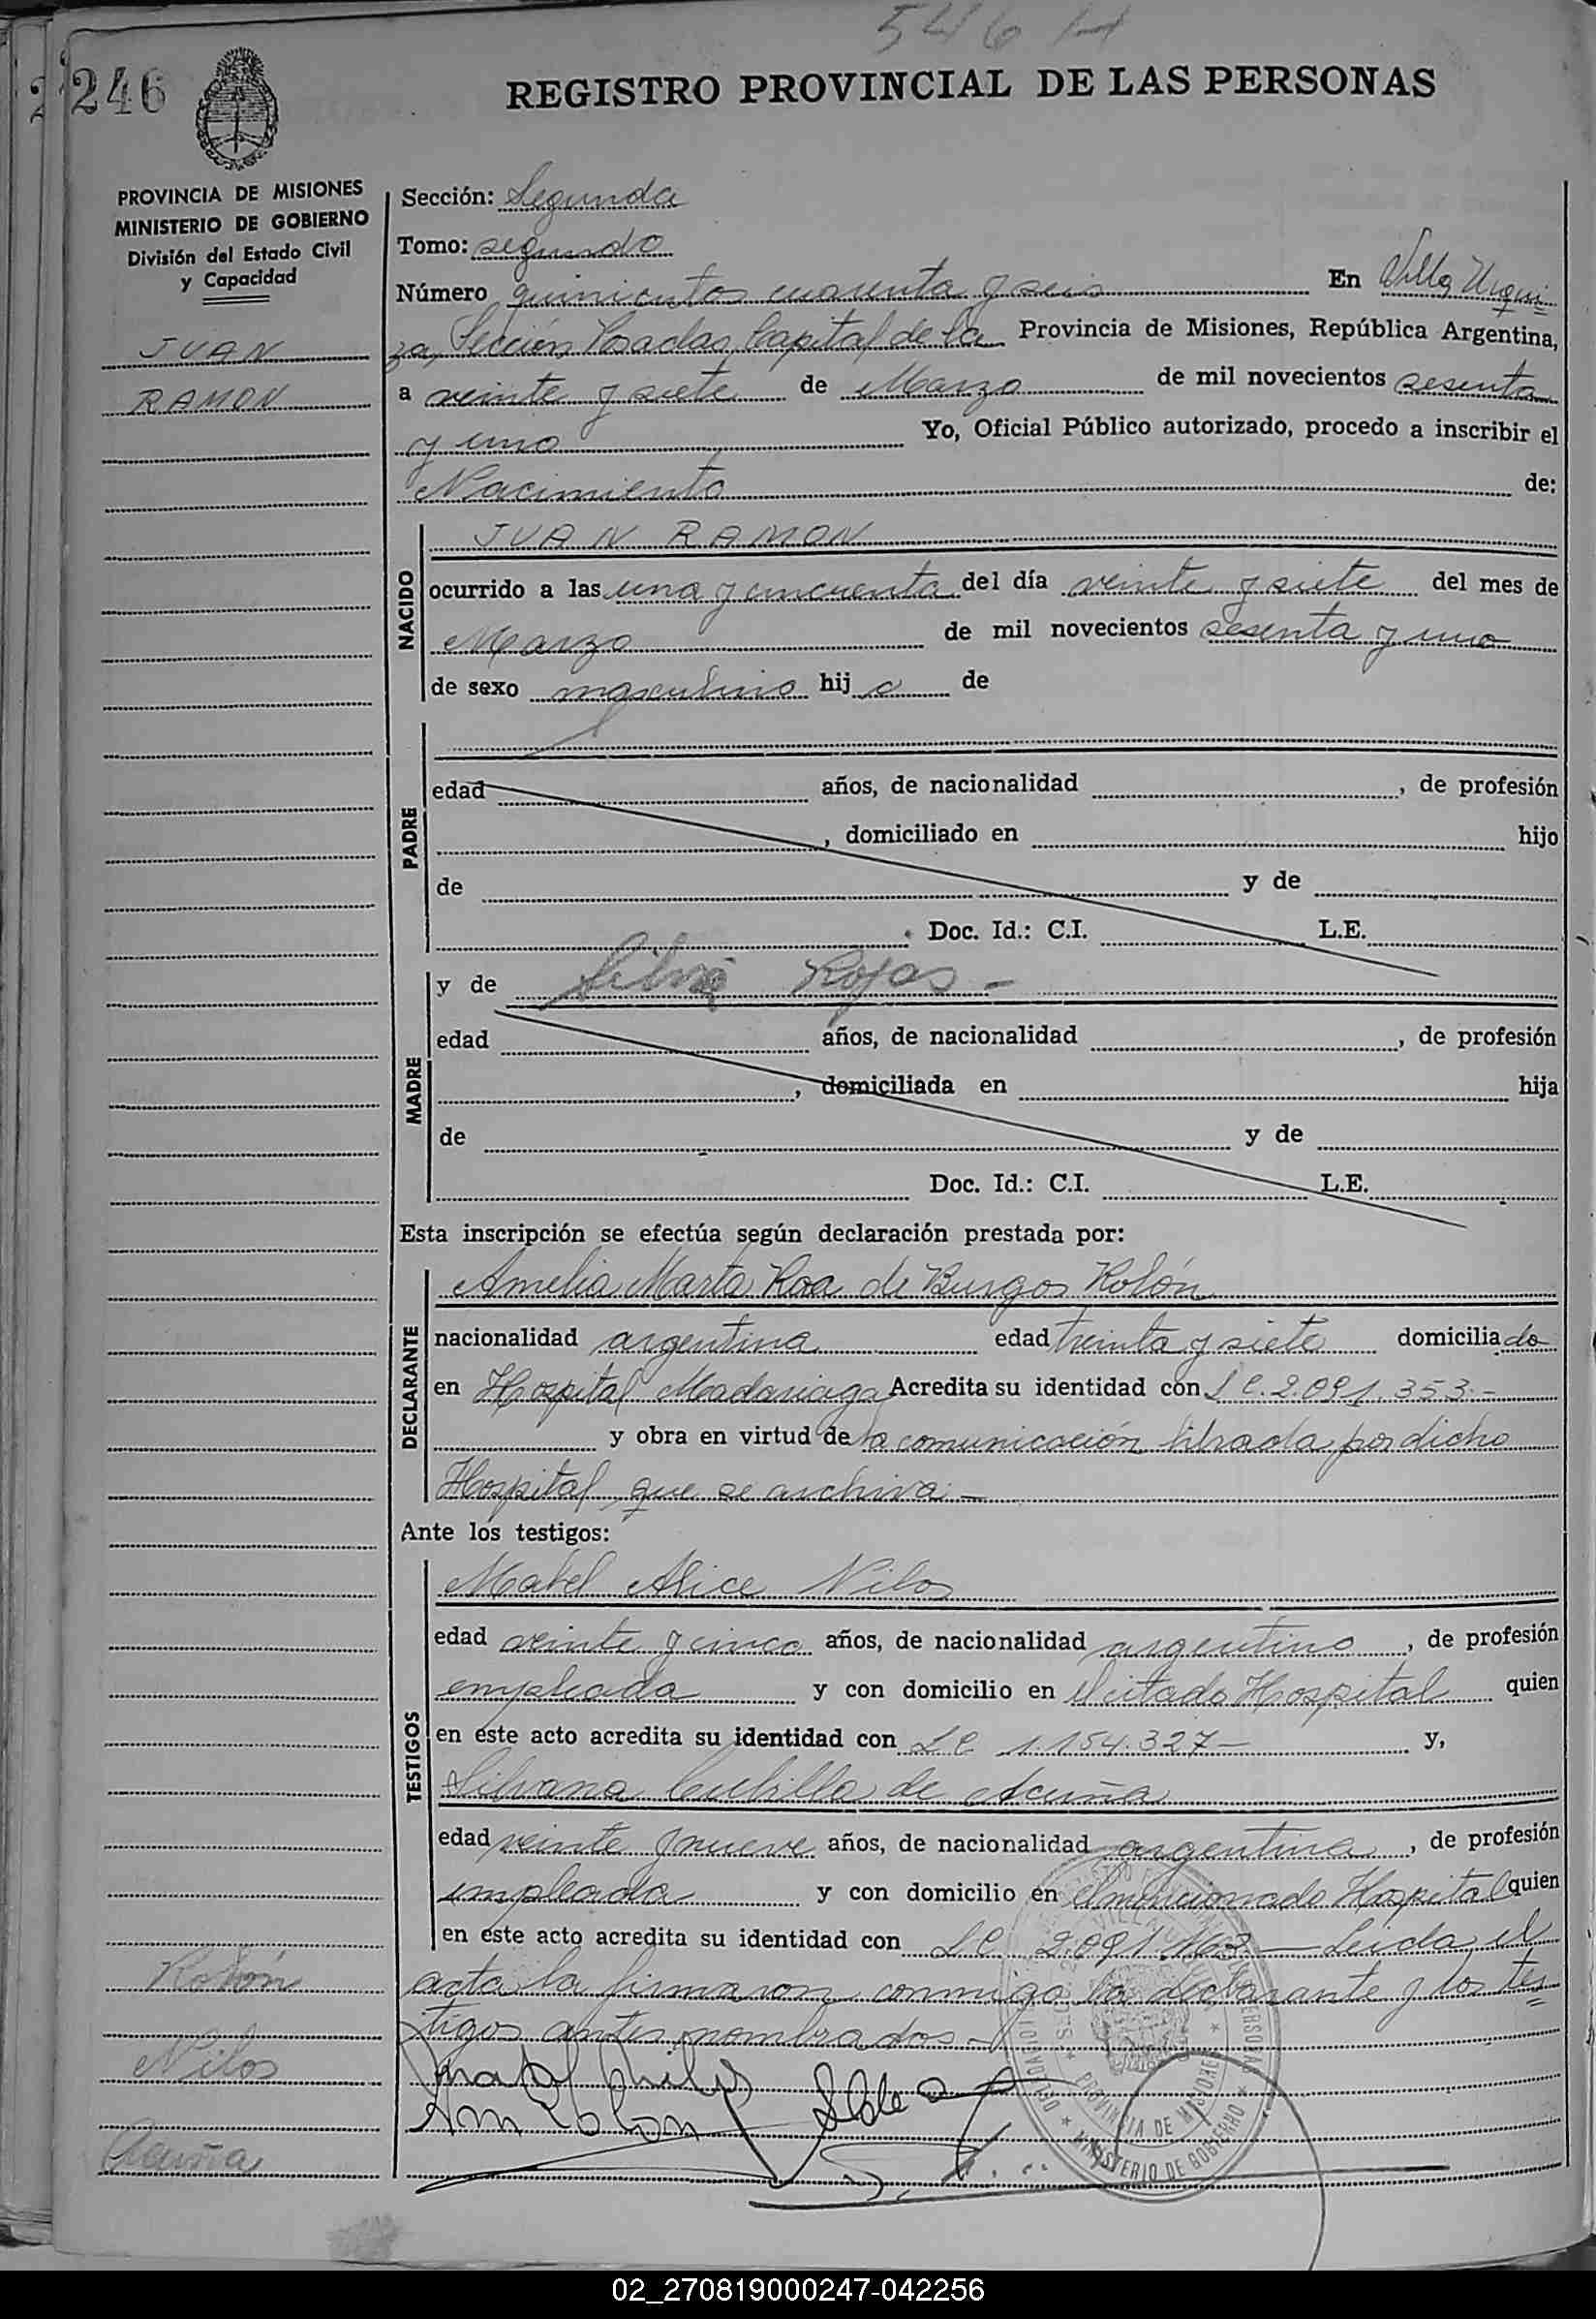 546 H
246
REGISTRO PROVINCIAL DE LAS PERSONAS
PROVINCIA DE MISIONES
MINISTERIO DE GOBIERNO
División del Estado Civil
y Capacidad
JUAN
RAMON
Sección: Segunda
Tomo: segundo
Número quinientos cuarenta y seis En Villa Urqui
za, Sección Posadas Capital de la Provincia de Misiones, República Argentina,
a veinte y siete de Marzo de mil novecientos sesenta
y uno Yo, Oficial Público autorizado, procedo a inscribir el
Nacimiento de:
NACIDO
JUAN RAMON
ocurrido a las una y cincuenta del día veinte y siete del mes de
Marzo de mil novecientos sesenta y uno
de sexo masculino hij o de
PADRE
edad años, de nacionalidad , de profesión
, domiciliado en hijo
de y de
Doc. Id.: C.I. L.E.
MADRE
y de Rojas -
edad años, de nacionalidad , de profesión
, domiciliada en hija
de y de
Doc. Id.: C.I. L.E.
Esta inscripción se efectúa según declaración prestada por:
DECLARANTE
Amelia Marta Roa de Burgos Rolón
nacionalidad argentina edad treinta y siete domiciliado do
en Hospital Madariaga Acredita su identidad con L C. 2.091.353.-
y obra en virtud de la comunicación librada por dicho
Hospital, que se archiva.-
Ante los testigos:
TESTIGOS
Mabel Alice Nilos
edad veinte y cinco años, de nacionalidad argentino , de profesión
empleada y con domicilio en el citado Hospital quien
en este acto acredita su identidad con L C 1.154.327- y,
Silvana Cubilla de Acuña
edad veinte y nueve años, de nacionalidad argentina , de profesión
empleada y con domicilio en el mencionado Hospital quien
en este acto acredita su identidad con L C 2.091.163 - Leida el
acta la firmaron conmigo la declarante y los tes
tigos antes nombrados-
Rolón
Nilos
Acuña
PROVINCIA DE MISIONES
MINISTERIO DE GOBIERNO
02_270819000247-042256